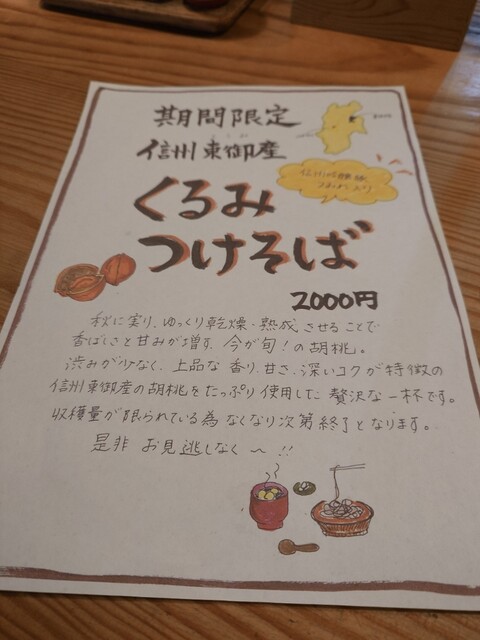 期間限定
とうみ
信州東御産
くるみ
つけそば
2000円
秋に実り、ゆっくり乾燥・熟成させることで
香ばしさと甘みが増す、今が旬!の胡桃。
渋みが少なく、上品な香り、甘さ、深いコクが特徴の
信州東御産の胡桃をたっぷり使用した贅沢な一杯です。
収穫量が限られている為なくなり次第終了となります。
是非お見逃しなく〜!!